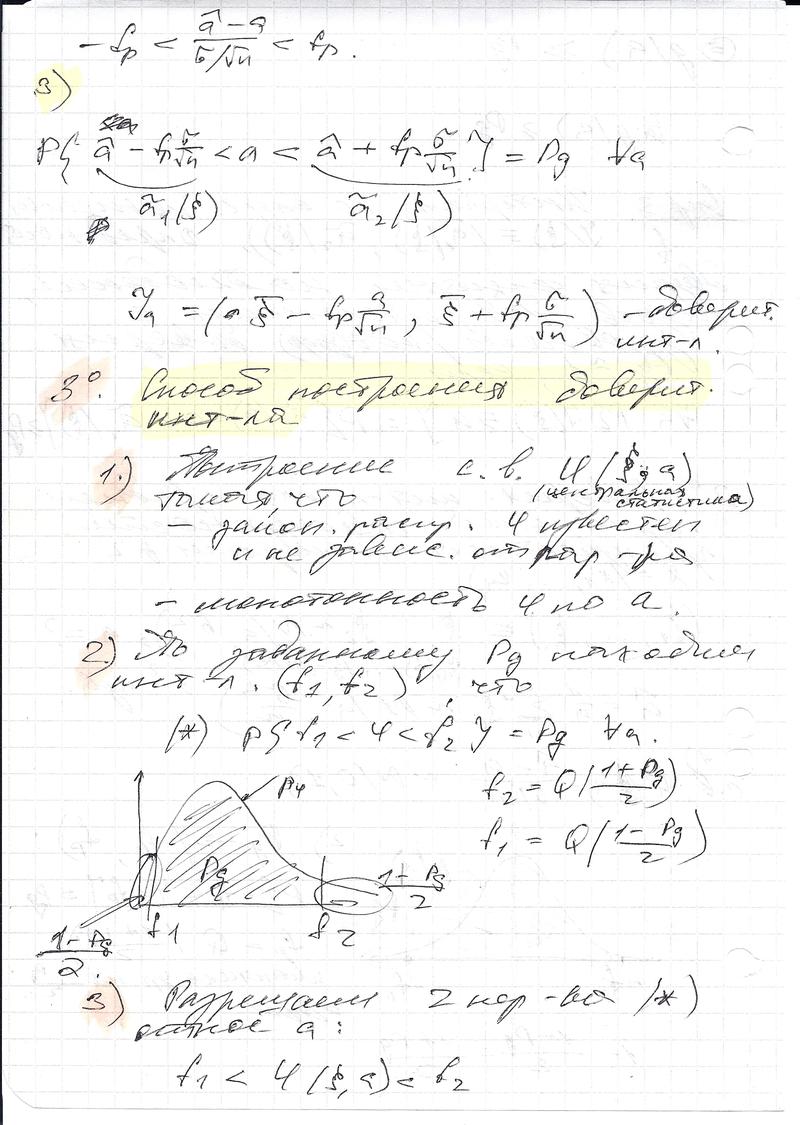 -fp < (â - a)/(σ/√n) < fp.
3)
P{ â - fp σ/√n < a < â + fp σ/√n } = Pg ∀a
ã1(ξ) ã2(ξ)
Ja = ( ξ̄ - fp σ/√n , ξ̄ + fp σ/√n ) - доверит.
инт-л.
3°. Способ построения доверит.
инт-ла
1.) Построение с.в. Ч(ξ, a)
(центральная
статистика)
такая, что
- закон. распр. Ч известен
и не завис. от пар-ра
- монотонность Ч по a.
2.) По заданному Pg находим
инт-л. (f1, f2), что
(*) P{ f1 < Ч < f2 } = Pg ∀a.
f2 = Q((1+Pg)/2)
f1 = Q((1-Pg)/2)
PЧ
Pg
(1+Pg)/2
f1 f2
(1-Pg)/2.
3) Разрешаем 2 нер-ва (*)
относ a:
f1 < Ч(ξ, a) < f2